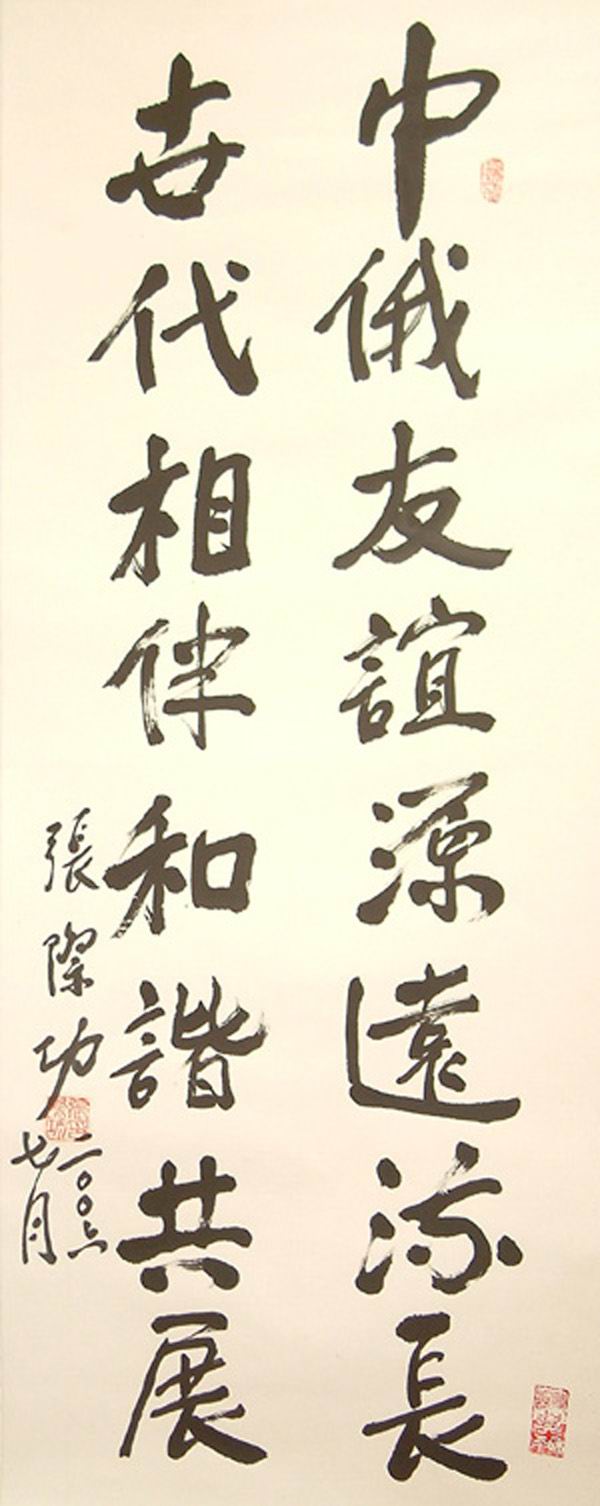 中俄友誼源遠流長
世代相伴和諧共展
張際功
二〇〇六
七月